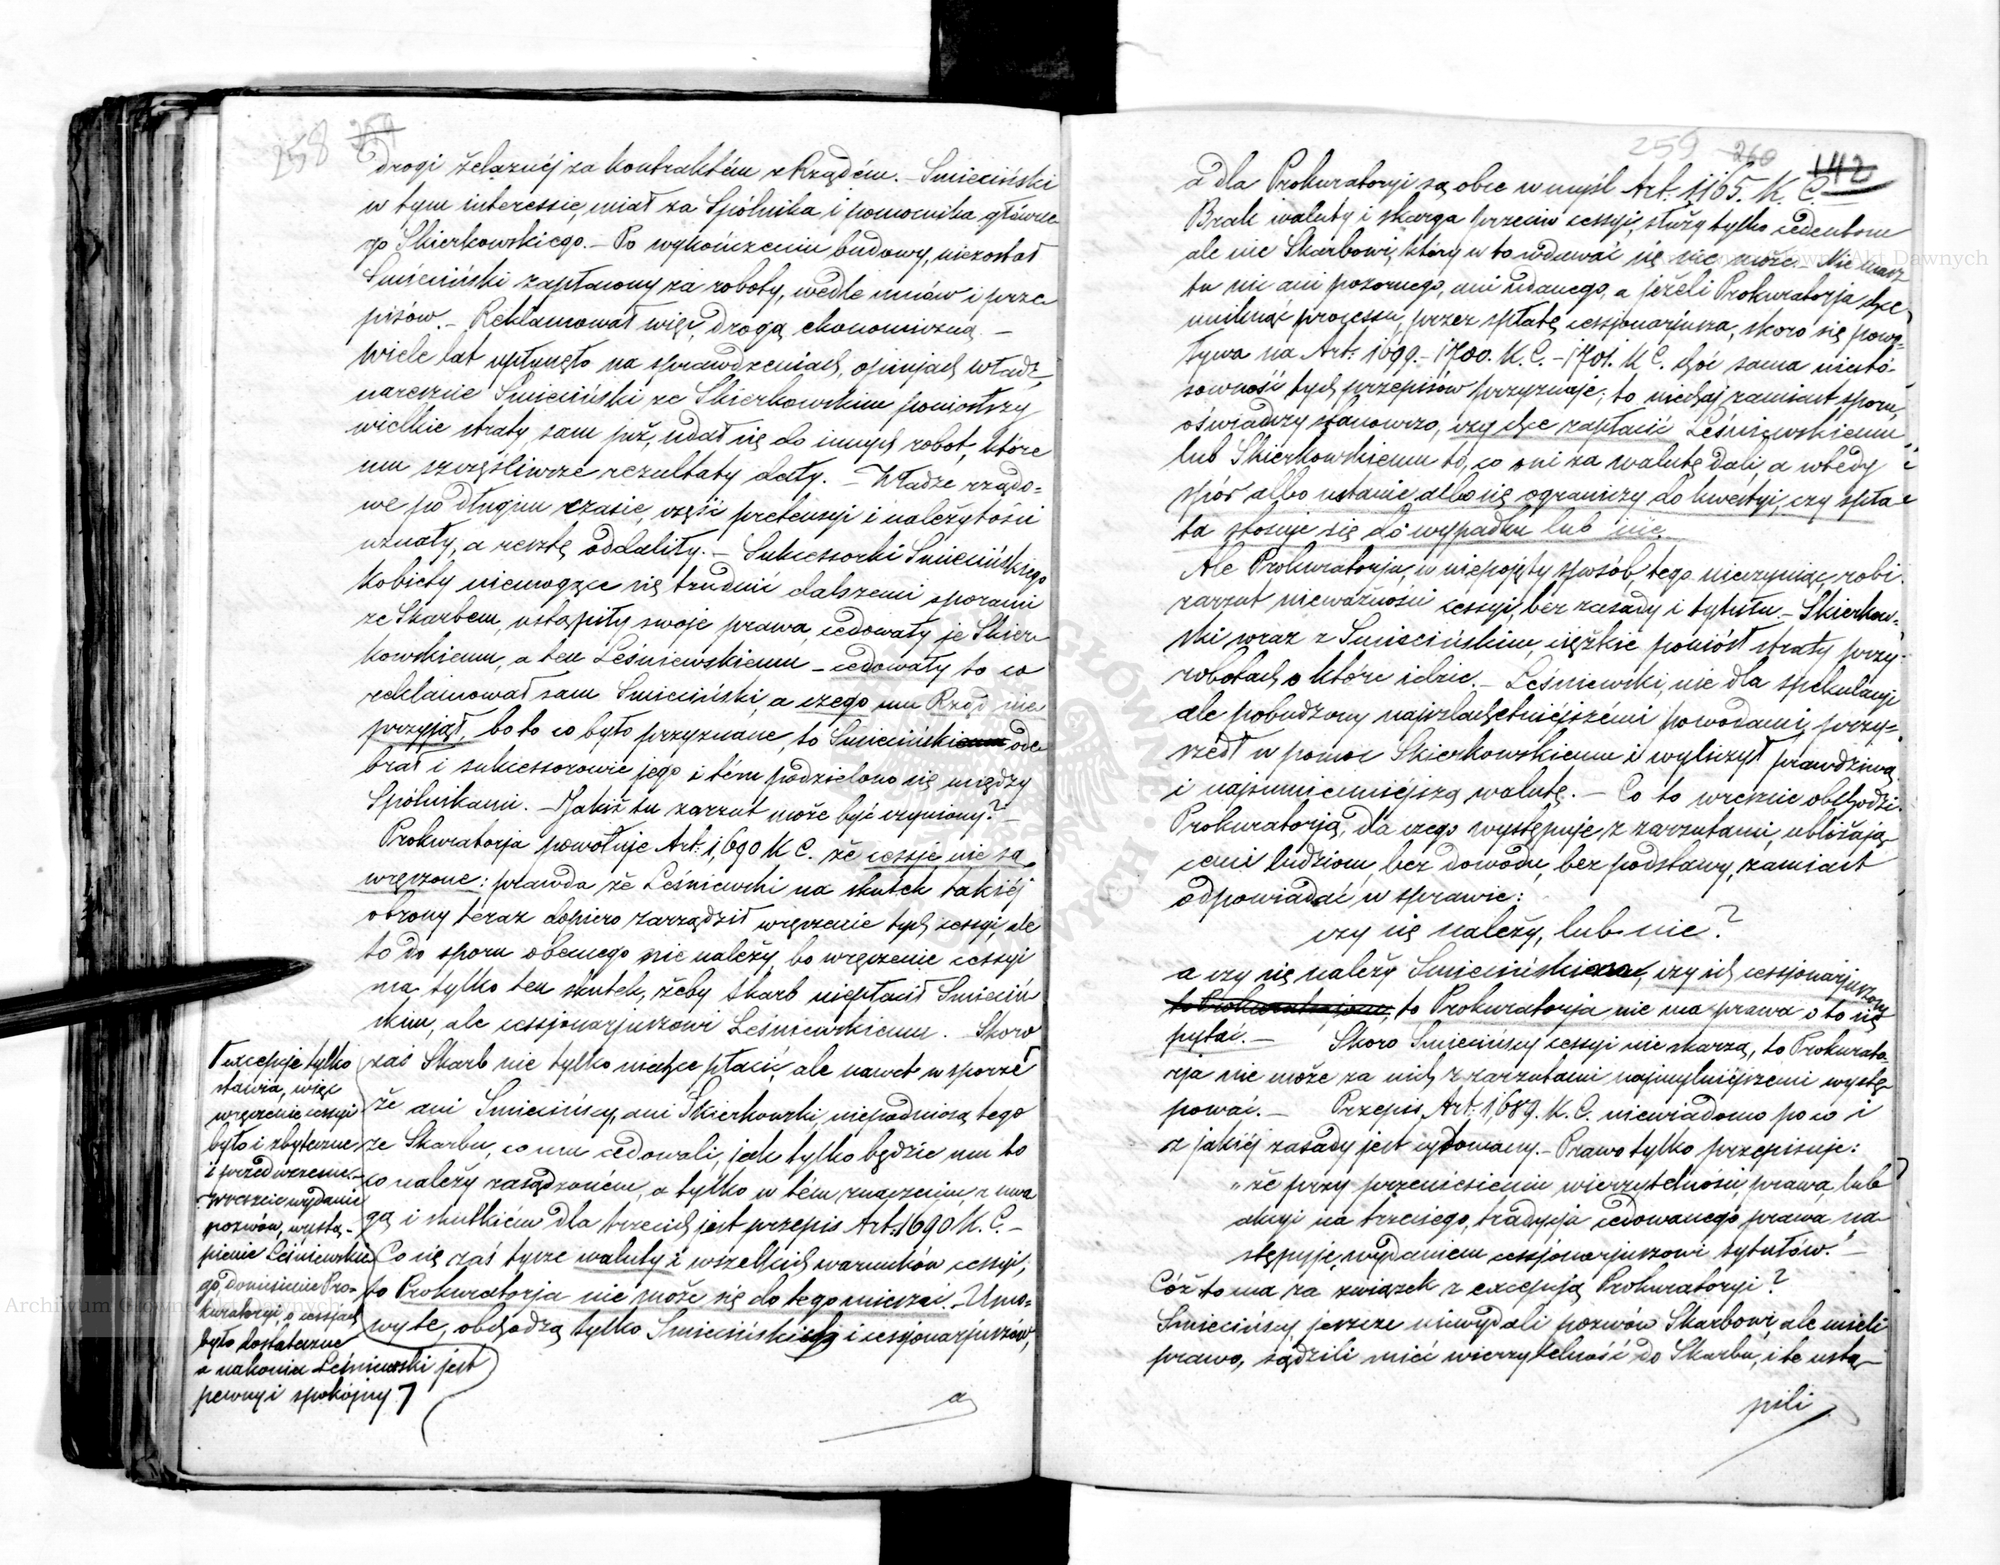 258 259
drogi żelaznéj za kontraktém z Rządém. – Smieciński
w tym interessie, miał za Spólnika i pomocnika główne
go Skierkowskiego. – Po wykończeniu budowy, niezostał
Smieciński zapłacony za roboty, wedle umów i prze
pisów. – Reklamował więc, drogą ekonomiczną. –
Wiele lat upłynęło na sprawdzeniach, opinjach władz,
nareszcie Smieciński ze Skierkowskim poniosłszy
wielkie straty, sam już, udał się do innych robot, które
mu szczęśliwsze rezultaty dały. – Władze rządo=
we po długim czasie, część pretensyi i należytości
uznały, a resztę oddaliły. – Sukcessorki Smiecińskiego
Kobiety niemogące się trudnić dalszemi sporami
ze Skarbem, ustąpiły swoje prawa, cedowały je Skier
kowskiemu, a ten Leśniewskiemu – cedowały to co
reklamował sam Smieciński, a czego mu Rząd nie
przyjął, bo to co było przyznane, to Smieciński ode
brał i sukcessorowie jego i tém podzielono się między
Spólnikami. – Jakiż tu zarzut może być czyniony? –
Prokuratorja powołuje Art: 1,690 K C. że cessje nie są
wręczone: prawda że Leśniewski na skutek takiéj
obrony teraz dopiero zarządził wręczenie tych cessyi, ale
to do sporu obecnego nie należy, bo wręczenie cessyi
ma tylko ten skutek, żeby Skarb niepłacił Smieciń
skim, ale cessjonarjuszowi Leśniewskiemu. Skoro
zaś Skarb nie tylko niechce płacić, ale nawet w sporze
że ani Smiecińscy, ani Skierkowski, niepodniosą tego
ze Skarbu, co mu cedowali, jak tylko będzie mu to
co należy zasądzoném, a tylko w tém znaczeniu z uwa
gą i skutkiém dla trzecich jest przepis Art: 1690 K. C. –
Co się zaś tycze waluty i wszelkich warunków cessyi,
to Prokuratorja nie może się do tego mieszać. – Umo=
wy te, obchodzą tylko Smiecińskich i cessjonarjuszów,
a
excepcje tylko
stawia, więc
wręczenie cessyi
było i zbyteczne
i przedwczesne. –
Wreszcie wydanie
pozwów, wystą=
pienie Leśniewskie
go, doniesienie Pro=
kuratoryi, o cessjach
było dostateczne
a nakoniec Leśniewski jest
pewny i spokojny
259 260 142
a dla Prokuratoryi są obce w myśl Art: 1165. K. C.
Brak waluty i skarga przeciw cessyi, służą tylko cedentom
ale nie Skarbowi, który w to wdawać się nie może. – Nie masz
tu nic ani pozornego, ani udanego, a jeżeli Prokuratorja chce
uniknąć processu, przez spłatę cessjonarjusza, skoro się powo=
ływa na Art: 1699. – 1700. K. C. – 1701. K C. choć sama niesto=
sowność tych przepisów przyznaje; to niechaj zamiast sporu,
oświadczy stanowczo, czy chce zapłacić Leśniewskiemu
lub Skierkowskiemu to, co oni za walutę dali, a wtedy
spór albo ustanie albo się ograniczy do kwestyi, czy spła=
ta stosuje się do wypadku lub nie.
Ale Prokuratorja, w niepojęty sposób, tego nieczyniąc, robi
zarzut nieważności cessyi, bez zasady i tytułu. – Skierkow=
ski wraz z Smiecińskim, ciężkie poniósł straty przy
robotach o które idzie. – Leśniewski, nie dla spekulacyi
ale pobudzony najszlachetniéjszémi powodami, przy=
szedł w pomoc Skierkowskiemu i wyliczył prawdziwą
i najsumienniéjszą walutę. – Co to wreszcie obchodzi
Prokuratorją, dla czego występuje z zarzutami, ubliżają=
cemi ludziom, bez dowodu, bez podstawy, zamiast
odpowiadać w sprawie:
czy się należy, lub nie?
a czy się należy Smiecińskim, czy ich cessjonarjuszowi
to Prokuratorja nie ma prawa o to się
pytać. – Skoro Smiecińscy cessyi nie skarzą, to Prokurato=
rja nie może za nich z zarzutami najmylniéjszemi wystę=
pować. – Przepis Art: 1,689. K. C. niewiadomo po co i
z jakiéj zasady jest cytowany. – Prawo tylko przepisuje:
„że przy przeniesieniu wierzytelności, prawa, lub
akcyi na trzeciego, tradycja cedowanego prawa na=
stępuje, wydaniem cessjonarjuszowi tytułów.” –
Cóż to ma za związek z excepcją Prokuratoryi?
Smiecińscy, jeszcze niewydali pozwów Skarbowi, ale mieli
prawo, sądzili mieć wierzytelność do Skarbu, i te ustą=
pili